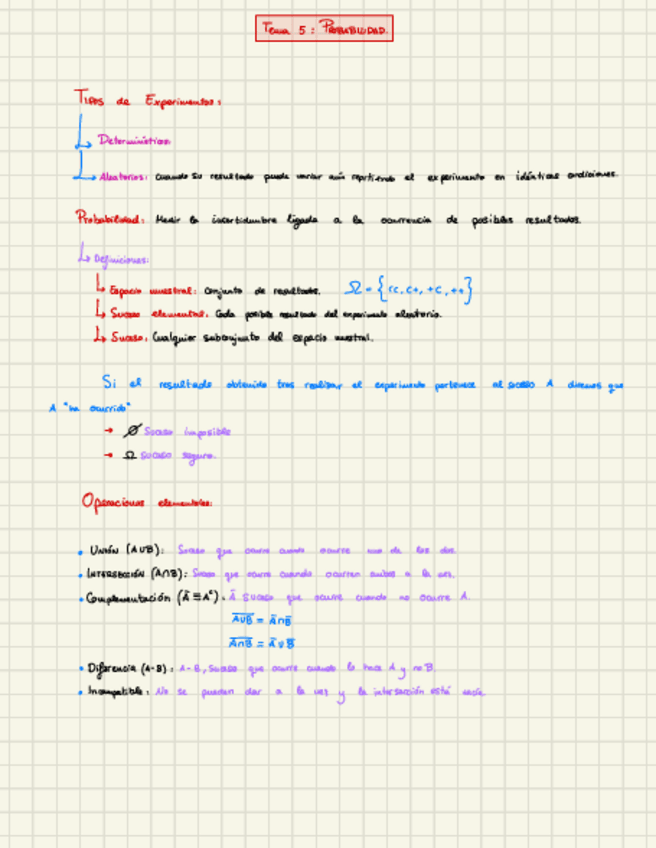 Tema 5: PROBABILIDAD.
Tipos de Experimentos:
Deterministicos
Aleatorios: Cuando su resultado puede variar aún repitiendo el experimento en idénticas condiciones.
Probabilidad: Medir la incertidumbre ligada a la ocurrencia de posibles resultados.
Definiciones:
Espacio muestral: Conjunto de resultados. Ω = {cc, c+, +c, ++}
Suceso elemental: Cada posible resultado del experimento aleatorio.
Suceso: Cualquier subconjunto del espacio muestral.
Si el resultado obtenido tras realizar el experimento pertenece al suceso A diremos que
A "ha ocurrido"
→ Ø Suceso imposible
→ Ω Suceso seguro.
Operaciones elementales:
• UNIÓN (A∪B): Suceso que ocurre cuando ocurre uno de los dos.
• INTERSECCIÓN (A∩B): Suceso que ocurre cuando ocurren ambos a la vez.
• Complementación (Ā ≡ Aᶜ): Ā suceso que ocurre cuando no ocurre A.
A̅∪̅B̅ = Ā∩B̅
A̅∩̅B̅ = Ā∪B̅
• Diferencia (A-B): A-B, Suceso que ocurre cuando lo hace A y no B.
• Incompatible: No se pueden dar a la vez y la intersección está vacía.